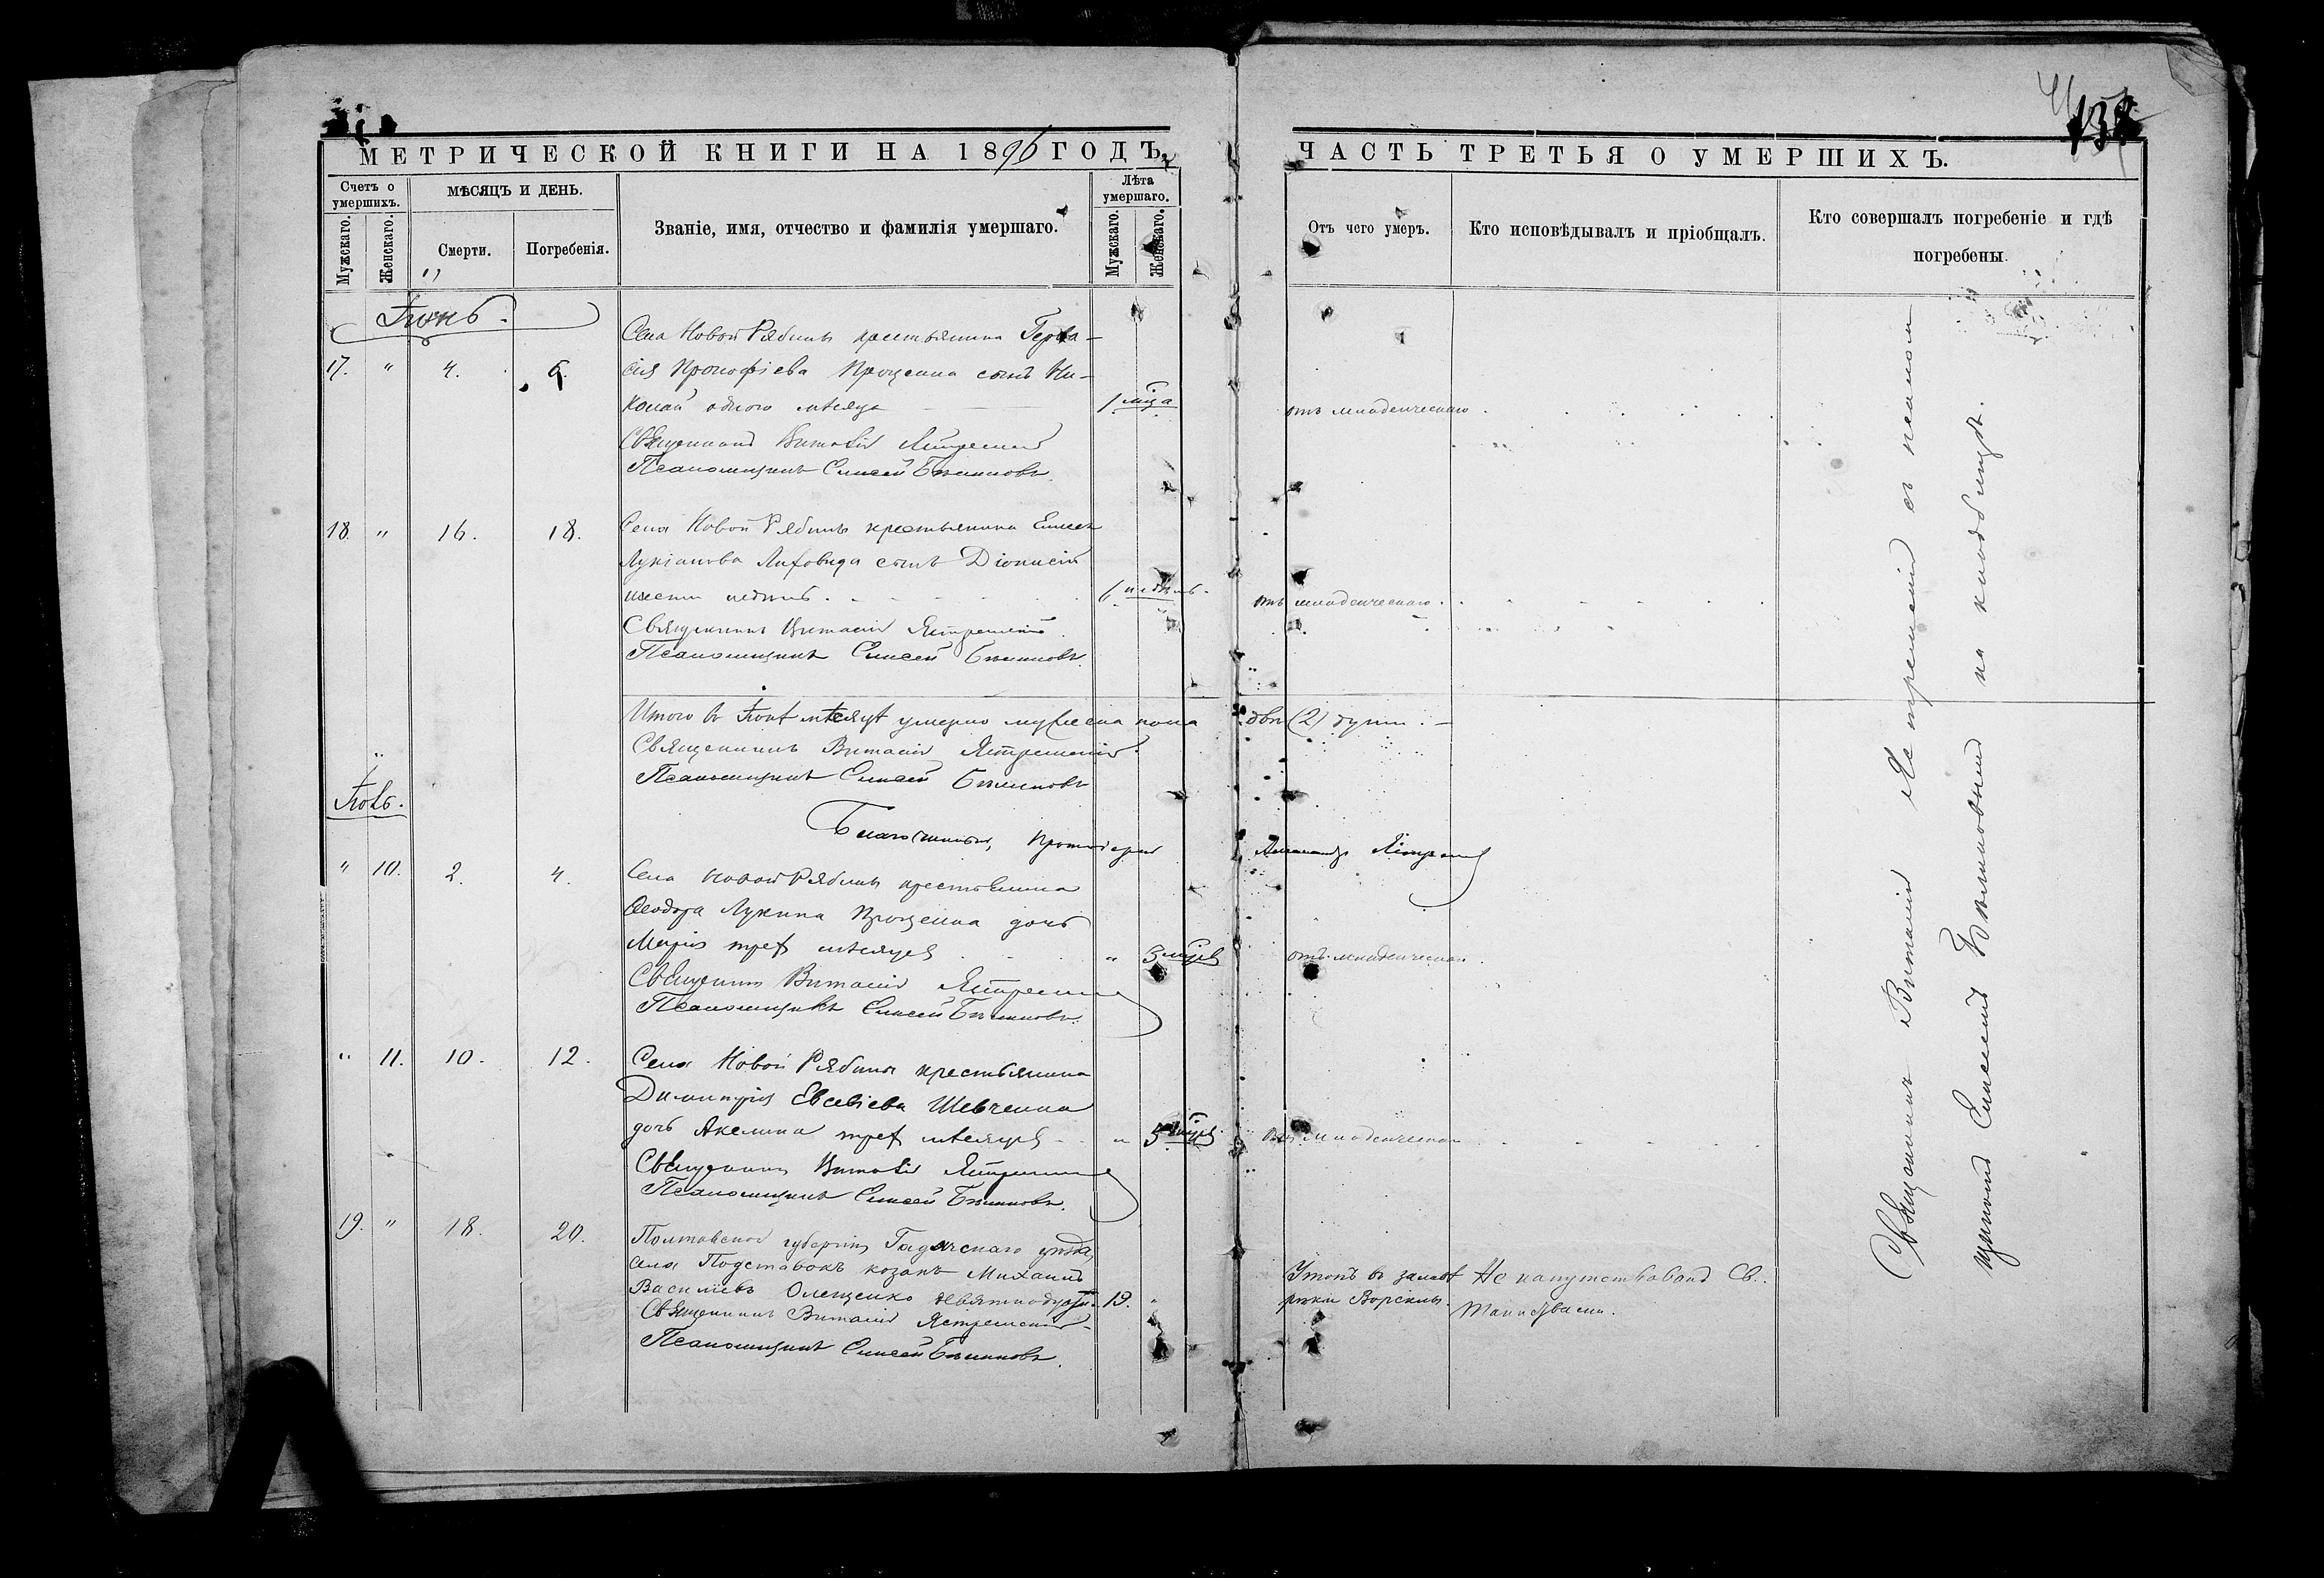 138
МЕТРИЧЕСКОЙ КНИГИ НА 1896 ГОДЪ,
Счетъ о умершихъ.
Мужскаго.
Женскаго.
МѢСЯЦЪ И ДЕНЬ.
Смерти.
Погребенія.
Званіе, имя, отчество и фамилія умершаго.
Лѣта умершаго.
Мужскаго.
Женскаго.
ЧАСТЬ ТРЕТЬЯ О УМЕРШИХЪ.
Отъ чего умеръ.
Кто исповѣдывалъ и пріобщалъ.
Кто совершалъ погребеніе и гдѣ
погребены.
Іюнь.
17. " 4. 6.
Села Новой Рябины крестьянина Герва-
сія Прокофіева Проценка сынъ Ни-
колай одного мѣсяца 1 мца отъ младенческаго
Священникъ Виталій Ястремскій
Псаломщикъ Елисей Бѣликовъ.
18. " 16. 18.
Села Новой Рябины крестьянина Елисея
Лукіанова Лиховида сынъ Діонисій
шести недѣль. 6 недѣль. отъ младенческаго.
Священникъ Виталій Ястремскій.
Псаломщикъ Елисей Бѣликовъ.
Итого въ Іюнѣ мѣсяцѣ умерло мужеска пола двѣ (2) души.
Священникъ Виталій Ястремскій.
Псаломщикъ Елисей Бѣликовъ
Іюль.
Благочинный, Протоіерей Ястремскій
" 10. 2. 4.
Села Новой Рябины крестьянина
Ѳеодора Лукина Проценка дочь
Марія трех мѣсяцевъ " 3 мцевъ отъ младенческаго.
Священникъ Виталій Ястремскій
Псаломщикъ Елисей Бѣликовъ.
" 11. 10. 12.
Села Новой Рябины крестьянина
Димитрія Евсевіева Шевченка
дочь Акелина трех мѣсяцевъ " 3 мцевъ. отъ младенческаго
Священникъ Виталій Ястремскій
Псаломщикъ Елисей Бѣликовъ.
19. " 18. 20.
Полтавской губерніи Гадячскаго уѣзда,
села Подставокъ козакъ Михаилъ
Васильевъ Олещенко 19. "
Утопъ въ рѣки Ворсклы.
Не напутствованъ Св.
Тайнствами.
Священникъ Виталій Ястремскій
Псаломщикъ Елисей Бѣликовъ.
Священникъ Виталій Ястремскій съ псалом
щикомъ Елисеемъ Бѣликовымъ на кладбищѣ.